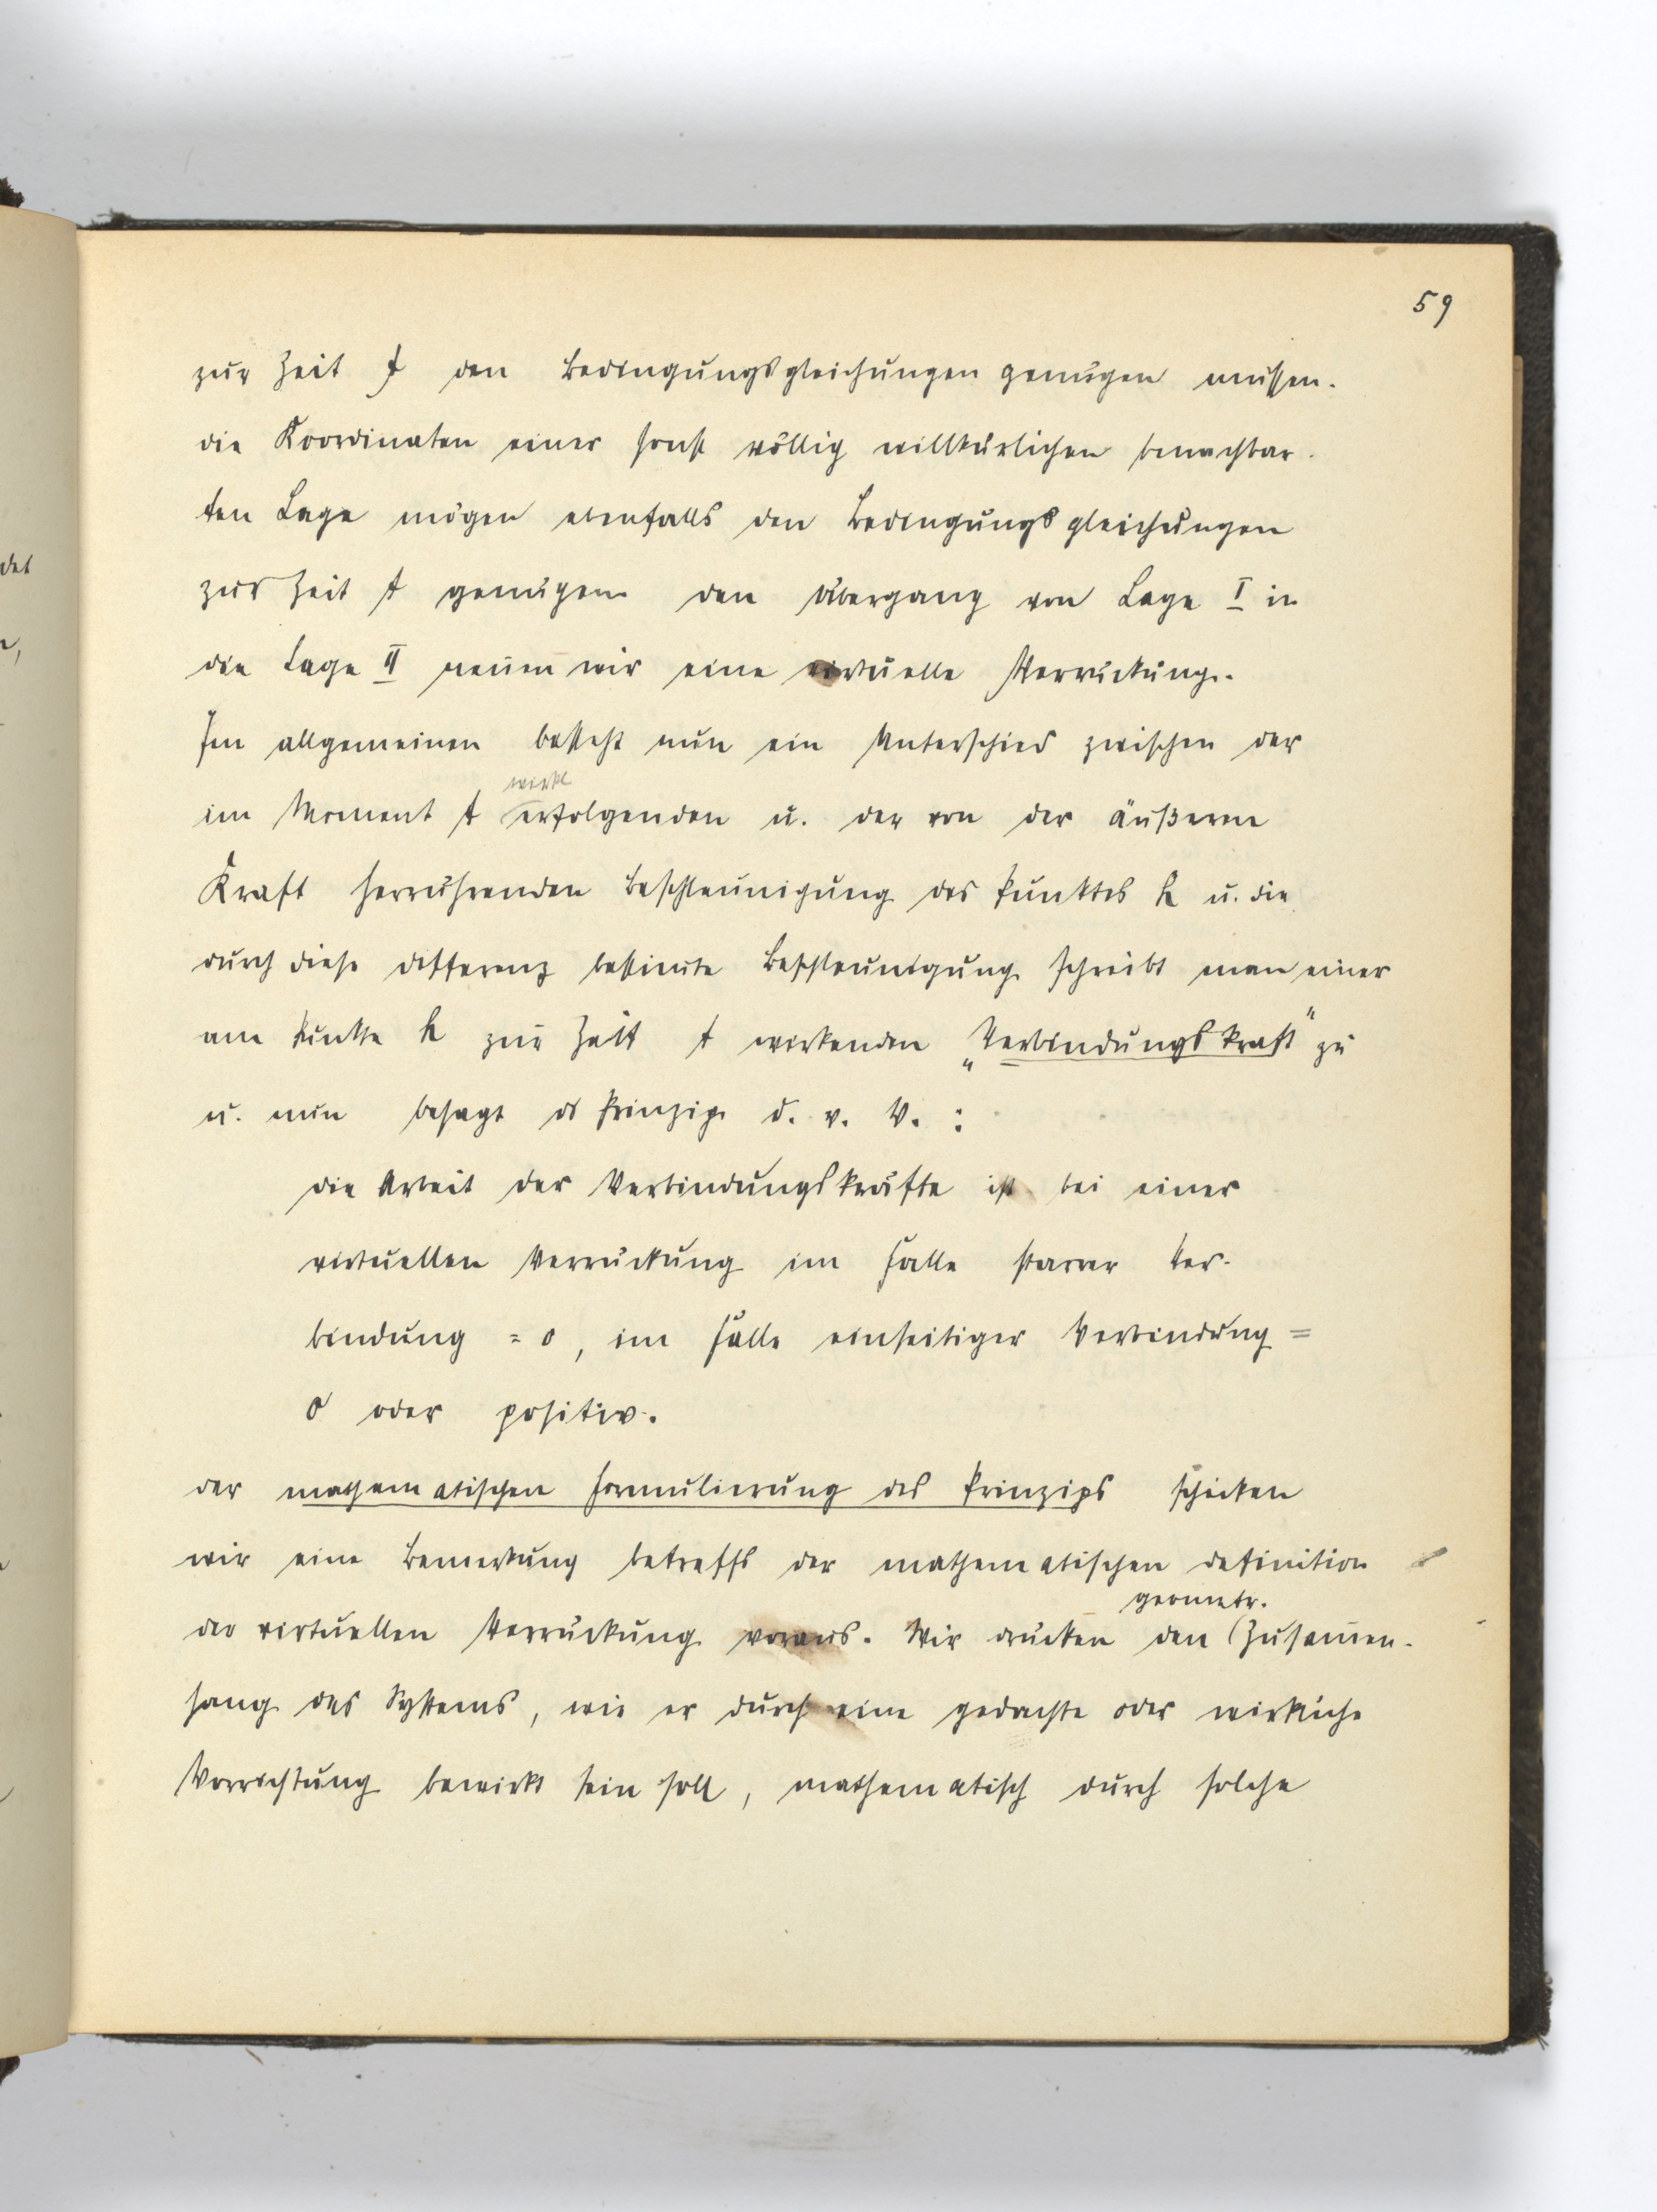 59
zur Zeit t den Bedingungsgleichungen genügen müssen.
die Koordinaten einer sonst völlig willkürlichen benachbar-
ten Lage mögen ebenfalls den Bedingungsgleichungen
zur Zeit t genügen den Übergang von Lage I in
die Lage II nen̄en wir eine virtuelle Verrückung.
Im allgemeinen besteht nun ein Unterschied zwischen der
wirkl
im Moment t erfolgenden u. der von der äußeren
Kraft herrührenden Beschleunigung des Punktes h u. die
durch diese Differenz bestim̄te Beschleunigung schreibt man einer
am Punkte h zur Zeit t wirkenden „Verbindungskraft" zu
u. nun besagt ds Prinzip d. v. V. :
die Arbeit der Verbindungskräfte ist bei einer
virtuellen Verrückung im Falle starrer Ver-
bindung = 0, im Falle einseitiger Verbindung =
0 oder positiv.
der mathematischen Formulierung des Prinzips schicken
wir eine Bemerkung betreffs der mathematischen Definition
geometr.
der virtuellen Verrückung voraus. Wir drücken den (Zusam̄en-
hang des Systems, wie er durch eine gedachte oder wirkliche
Vorrichtung bewirkt sein soll, mathematisch durch solche
det
n,